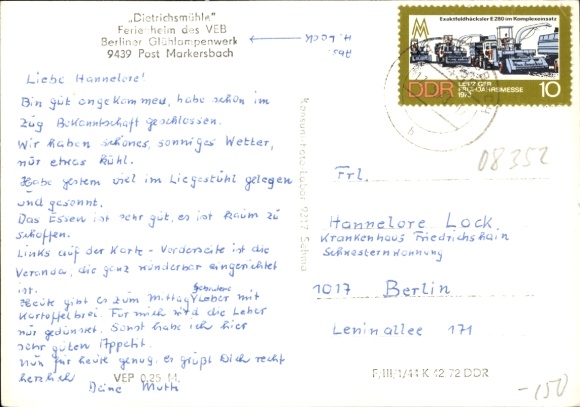 „Dietrichsmühle“
Ferienheim des VEB
Berliner Glühlampenwerk
9439 Post Markersbach
Abs. H. Lock
Liebe Hannelore!
Bin gut angekommen, habe schon im
Zug Bekanntschaft geschlossen.
Wir haben schönes, sonniges Wetter,
nur etwas kühl.
Habe gestern viel im Liegestühl gelegen
und gesonnt.
Das Essen ist sehr gut, es ist kaum zu
schaffen.
Links auf der Karte - Vorderseite ist die
Veranda, die ganz wunderbar eingerichtet
ist.
Heute gibt es zum Mittag gebratene Leber mit
Kartoffelbrei. Für mich wird die Leber
nur gedünstet. Sonst habe ich hier
sehr guten Appetit.
Nun für heute genug, es grüßt Dich recht
herzlich Deine Mutti
VEP 0,25 M
Exaktfeldhäcksler E 280 im Komplexeinsatz
DDR
LEIPZIGER
FRÜHJAHRSMESSE
10
08352
Frl.
Hannelore Lock
Krankenhaus Friedrichshain
Schwesternwohnung
1017 Berlin
Leninallee 171
F, III/1/44 K 42 72 DDR
-150